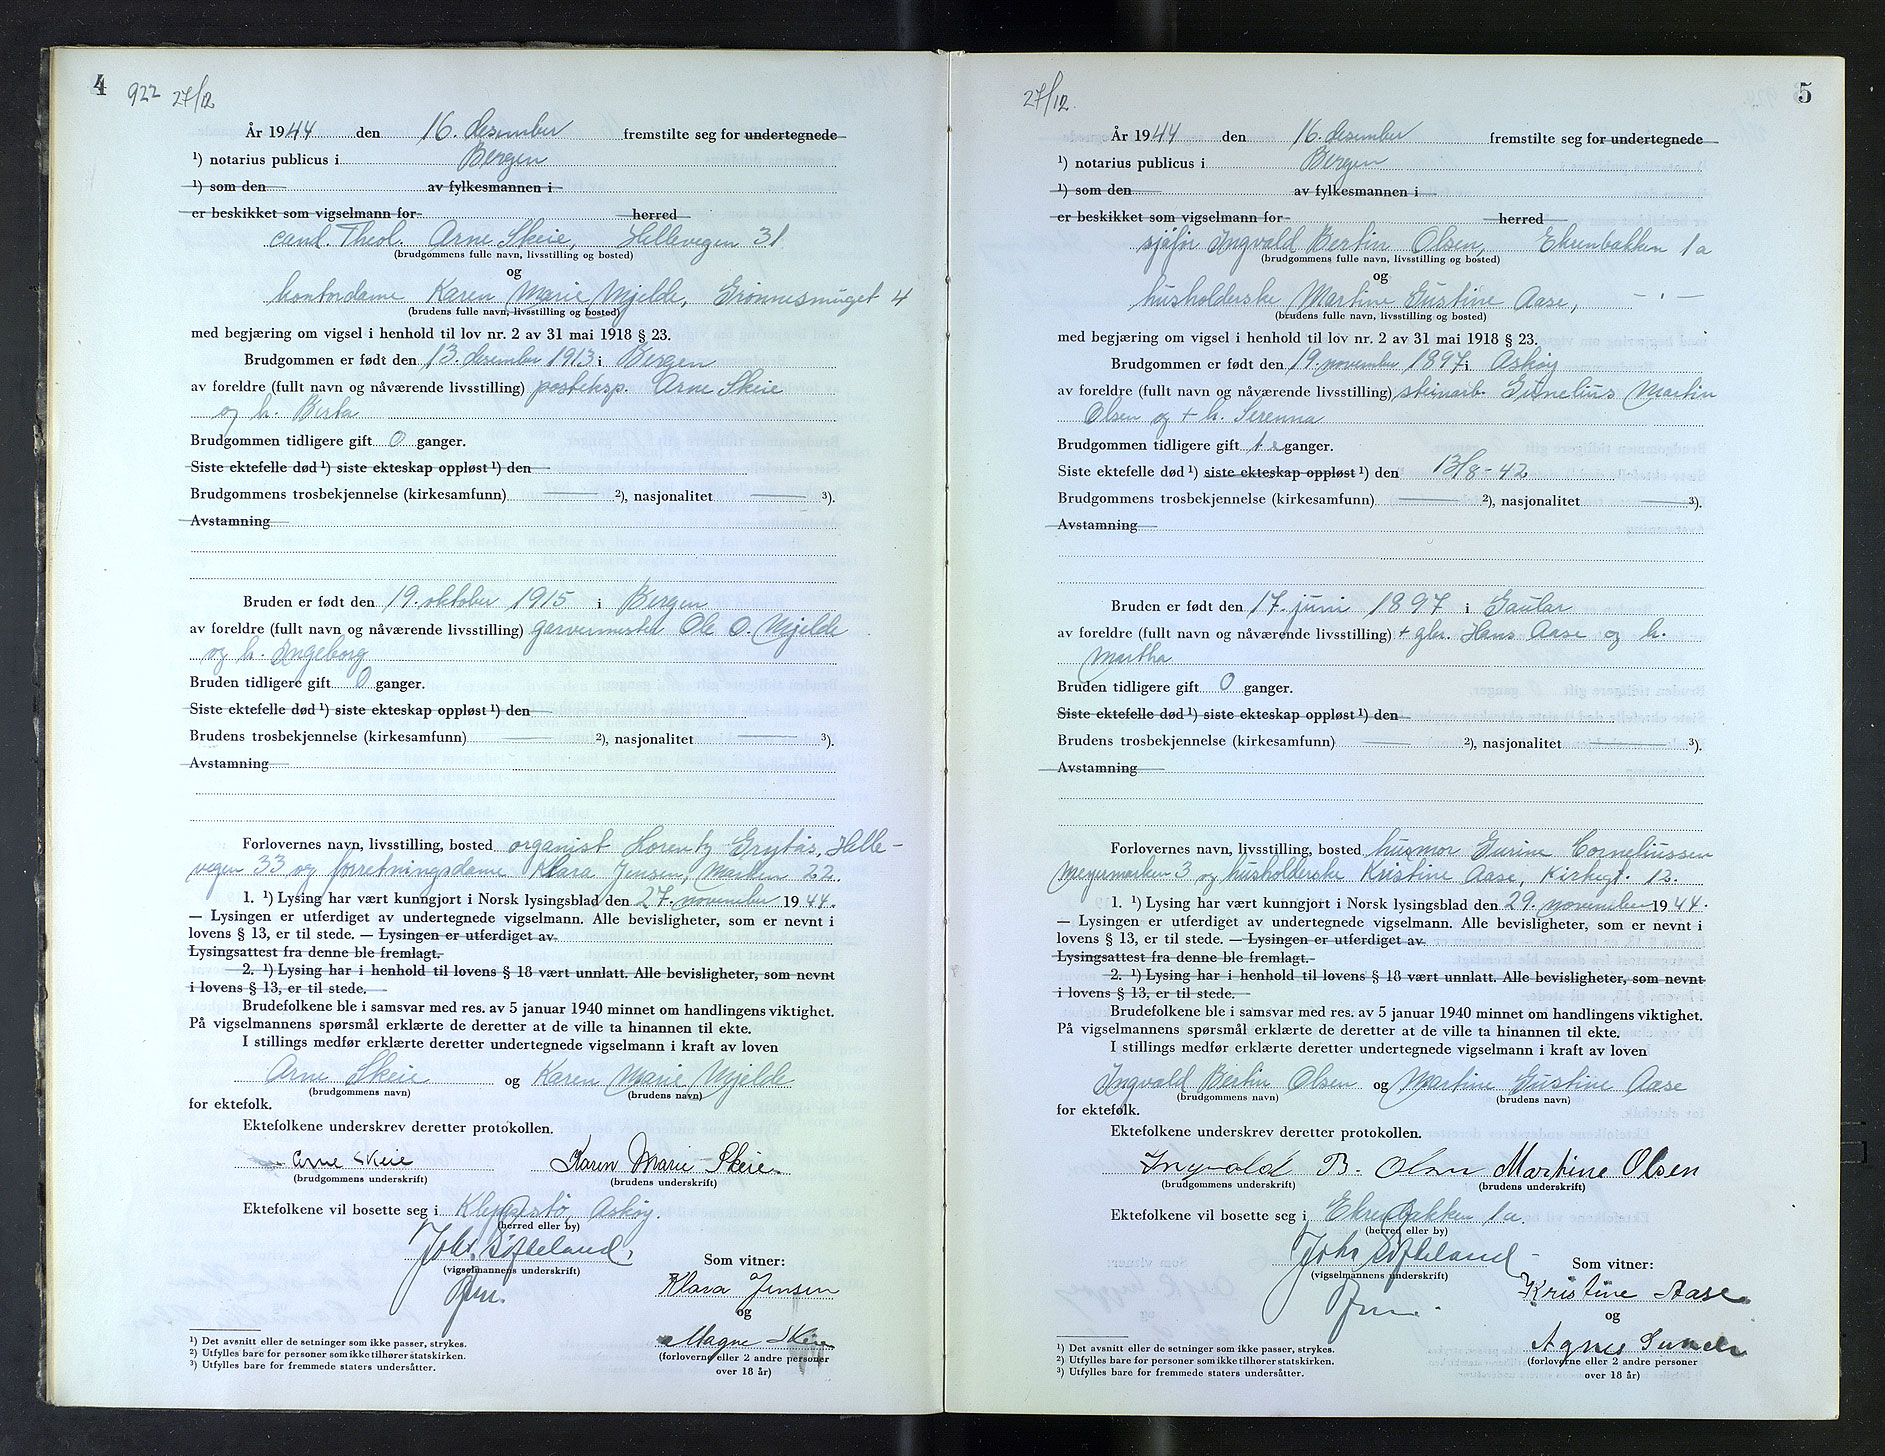 4 922 27/12
År 1944 den 16. desember fremstilte seg for undertegnede
¹) notarius publicus i Bergen
¹) som den av fylkesmannen i
er beskikket som vigselmann for herred
cand. Theol. Arne Skeie, Hellevegen 31
(brudgommens fulle navn, livsstilling og bosted)
og
kontordame Karen Marie Mjelde, Grønnesmuget 4
(brudens fulle navn, livsstilling og bosted)
med begjæring om vigsel i henhold til lov nr. 2 av 31 mai 1918 § 23.
Brudgommen er født den 13. desember 1913 i Bergen
av foreldre (fullt navn og nåværende livsstilling) posteksp. Arne Skeie
og h. Berta
Brudgommen tidligere gift 0 ganger.
Siste ektefelle død ¹) siste ekteskap oppløst ¹) den
Brudgommens trosbekjennelse (kirkesamfunn) — ²), nasjonalitet — ³).
Avstamning
Bruden er født den 19. oktober 1915 i Bergen
av foreldre (fullt navn og nåværende livsstilling) garvermester Ole O. Mjelde
og h. Ingeborg
Bruden tidligere gift 0 ganger.
Siste ektefelle død ¹) siste ekteskap oppløst ¹) den
Brudens trosbekjennelse (kirkesamfunn) — ²), nasjonalitet — ³).
Avstamning
Forlovernes navn, livsstilling, bosted organist Lorentz Grytås, Helle-
vegen 33 og forretningsdame Klara Jensen, Marken 22.
1. ¹) Lysing har vært kunngjort i Norsk lysingsblad den 27. november 1944.
— Lysingen er utferdiget av undertegnede vigselmann. Alle bevisligheter, som er nevnt i
lovens § 13, er til stede. — Lysingen er utferdiget av
Lysingsattest fra denne ble fremlagt.
2. ¹) Lysing har i henhold til lovens § 18 vært unnlatt. Alle bevisligheter, som nevnt
i lovens § 13, er til stede.
Brudefolkene ble i samsvar med res. av 5 januar 1940 minnet om handlingens viktighet.
På vigselmannens spørsmål erklærte de deretter at de ville ta hinannen til ekte.
I stillings medfør erklærte deretter undertegnede vigselmann i kraft av loven
Arne Skeie og Karen Marie Mjelde
(brudgommens navn) (brudens navn)
for ektefolk.
Ektefolkene underskrev deretter protokollen.
Arne Skeie Karen Marie Skeie.
(brudgommens underskrift) (brudens underskrift)
Ektefolkene vil bosette seg i Kleppestø, Askøy.
(herred eller by)
Johs. Søfteland,
(vigselmannens underskrift)
Som vitner:
Klara Jensen
og
Magne Skeie
(forloverne eller 2 andre personer
over 18 år)
¹) Det avsnitt eller de setninger som ikke passer, strykes.
²) Utfylles bare for personer som ikke tilhører statskirken.
³) Utfylles bare for fremmede staters undersåtter.
27/12. 5
År 1944 den 16. desember fremstilte seg for undertegnede
¹) notarius publicus i Bergen
¹) som den av fylkesmannen i
er beskikket som vigselmann for herred
sjåfør Ingvald Bertin Olsen, Ekrenbakken 1a
(brudgommens fulle navn, livsstilling og bosted)
og
husholderske Martine Gustine Aase, — " —
(brudens fulle navn, livsstilling og bosted)
med begjæring om vigsel i henhold til lov nr. 2 av 31 mai 1918 § 23.
Brudgommen er født den 19. november 1897 i Askøy
av foreldre (fullt navn og nåværende livsstilling) steinarb. Martin
Olsen og + h. Serenna
Brudgommen tidligere gift 1 ganger.
Siste ektefelle død ¹) siste ekteskap oppløst ¹) den 13/8-42
Brudgommens trosbekjennelse (kirkesamfunn) — ²), nasjonalitet — ³).
Avstamning
Bruden er født den 17. juni 1897 i Gaular
av foreldre (fullt navn og nåværende livsstilling) + gbr. Hans Aase og h.
Martha
Bruden tidligere gift 0 ganger.
Siste ektefelle død ¹) siste ekteskap oppløst ¹) den
Brudens trosbekjennelse (kirkesamfunn) — ²), nasjonalitet — ³).
Avstamning
Forlovernes navn, livsstilling, bosted husmor Gurine Corneliussen
Meyermarken 3 og husholderske Kristine Aase, Kirkegt. 12.
1. ¹) Lysing har vært kunngjort i Norsk lysingsblad den 29. november 1944.
— Lysingen er utferdiget av undertegnede vigselmann. Alle bevisligheter, som er nevnt i
lovens § 13, er til stede. — Lysingen er utferdiget av
Lysingsattest fra denne ble fremlagt.
2. ¹) Lysing har i henhold til lovens § 18 vært unnlatt. Alle bevisligheter, som nevnt
i lovens § 13, er til stede.
Brudefolkene ble i samsvar med res. av 5 januar 1940 minnet om handlingens viktighet.
På vigselmannens spørsmål erklærte de deretter at de ville ta hinannen til ekte.
I stillings medfør erklærte deretter undertegnede vigselmann i kraft av loven
Ingvald Bertin Olsen og Martine Gustine Aase
(brudgommens navn) (brudens navn)
for ektefolk.
Ektefolkene underskrev deretter protokollen.
Ingvald B. Olsen Martine Olsen
(brudgommens underskrift) (brudens underskrift)
Ektefolkene vil bosette seg i Ekrenbakken 1a.
(herred eller by)
Johs Søfteland
(vigselmannens underskrift)
Som vitner:
Kristine Aase
og
Agnes
(forloverne eller 2 andre personer
over 18 år)
¹) Det avsnitt eller de setninger som ikke passer, strykes.
²) Utfylles bare for personer som ikke tilhører statskirken.
³) Utfylles bare for fremmede staters undersåtter.